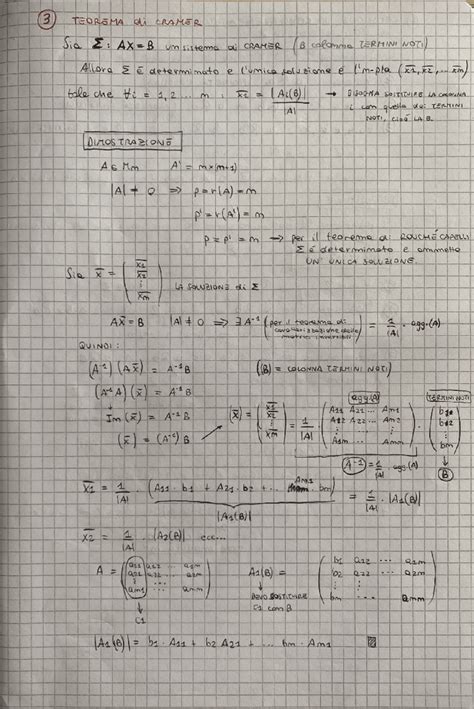 3 TEOREMA di CRAMER
Sia Σ: AX=B un sistema di CRAMER (B colonna TERMINI NOTI)
Allora Σ è determinato e l'unica soluzione è l'm-pla (x̄1, x̄2, ... x̄m)
tale che ∀i = 1,2 ... m : x̄i = |Ai(B)| / |A| → BISOGNA SOSTITUIRE LA COLONNA
i con quella dei TERMINI
NOTI, CIOÈ LA B.
DIMOSTRAZIONE
A ∈ Mm A' = m×(m+1)
|A| ≠ 0 ⇒ p = r(A) = m
p' = r(A') = m
p = p' = m → per il teorema di ROUCHÉ CAPELLI
Σ è determinato e ammette
UN'UNICA SOLUZIONE.
Sia x̄ = (x̄1 x̄2 ⋮ x̄m) LA SOLUZIONE di Σ
Ax̄ = B |A| ≠ 0 ⇒ ∃ A⁻¹ (per il teorema di caratterizzazione delle matrici invertibili) = 1/|A| · agg.(A)
QUINDI:
(A⁻¹)(Ax̄) = A⁻¹B (B = COLONNA TERMINI NOTI)
(A⁻¹A)(x̄) = A⁻¹B
Im(x̄) = A⁻¹B
(x̄) = (A⁻¹)B
agg(A) TERMINI NOTI
(x̄) = (x̄1 x̄2 ⋮ x̄m) = 1/|A| · (A11 A21 ... Am1
A12 A22 ... Am2
⋮
A1m ... Amm) · (b1 b2 ⋮ bm)
A⁻¹ = 1/|A| · agg.(A) B
x̄1 = 1/|A| · (A11·b1 + A21·b2 + ... Am1 bm) = 1/|A| · |A1(B)|
|A1(B)|
x̄2 = 1/|A| · |A2(B)| ecc...
A = (a11 a12 ... a1m
a21 a22 ... a2m
⋮
am1 ... amm) A1(B) = (b1 a12 ... a1m
b2 a22 ... a2m
⋮
bm ... amm)
C1
DEVO SOSTITUIRE
C1 con B
|A1(B)| = b1·A11 + b2 A21 + ... bm·Am1